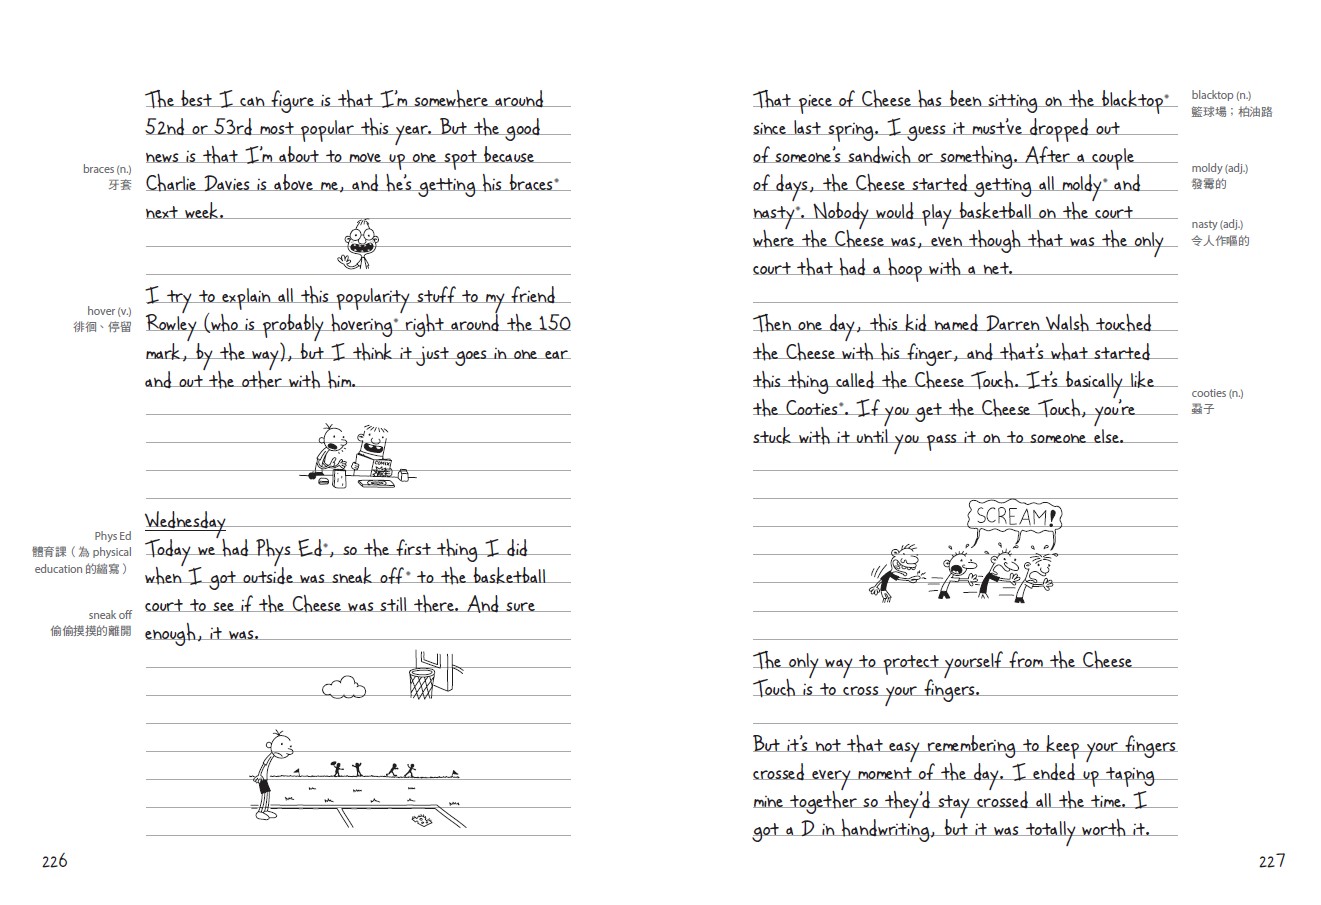 The best I can figure is that I'm somewhere around
52nd or 53rd most popular this year. But the good
news is that I'm about to move up one spot because
braces (n.)
牙套
Charlie Davies is above me, and he's getting his braces*
next week.
I try to explain all this popularity stuff to my friend
hover (v.)
徘徊、停留
Rowley (who is probably hovering* right around the 150
mark, by the way), but I think it just goes in one ear
and out the other with him.
COMIX
Wednesday
Phys Ed
體育課（為 physical
education 的縮寫）
Today we had Phys Ed*, so the first thing I did
when I got outside was sneak off* to the basketball
sneak off
偷偷摸摸的離開
court to see if the Cheese was still there. And sure
enough, it was.
226
That piece of Cheese has been sitting on the blacktop*
blacktop (n.)
籃球場；柏油路
since last spring. I guess it must've dropped out
of someone's sandwich or something. After a couple
moldy (adj.)
發霉的
of days, the Cheese started getting all moldy* and
nasty*. Nobody would play basketball on the court
nasty (adj.)
令人作嘔的
where the Cheese was, even though that was the only
court that had a hoop with a net.
Then one day, this kid named Darren Walsh touched
the Cheese with his finger, and that's what started
this thing called the Cheese Touch. It's basically like
cooties (n.)
蝨子
the Cooties*. If you get the Cheese Touch, you're
stuck with it until you pass it on to someone else.
SCREAM!
The only way to protect yourself from the Cheese
Touch is to cross your fingers.
But it's not that easy remembering to keep your fingers
crossed every moment of the day. I ended up taping
mine together so they'd stay crossed all the time. I
got a D in handwriting, but it was totally worth it.
227